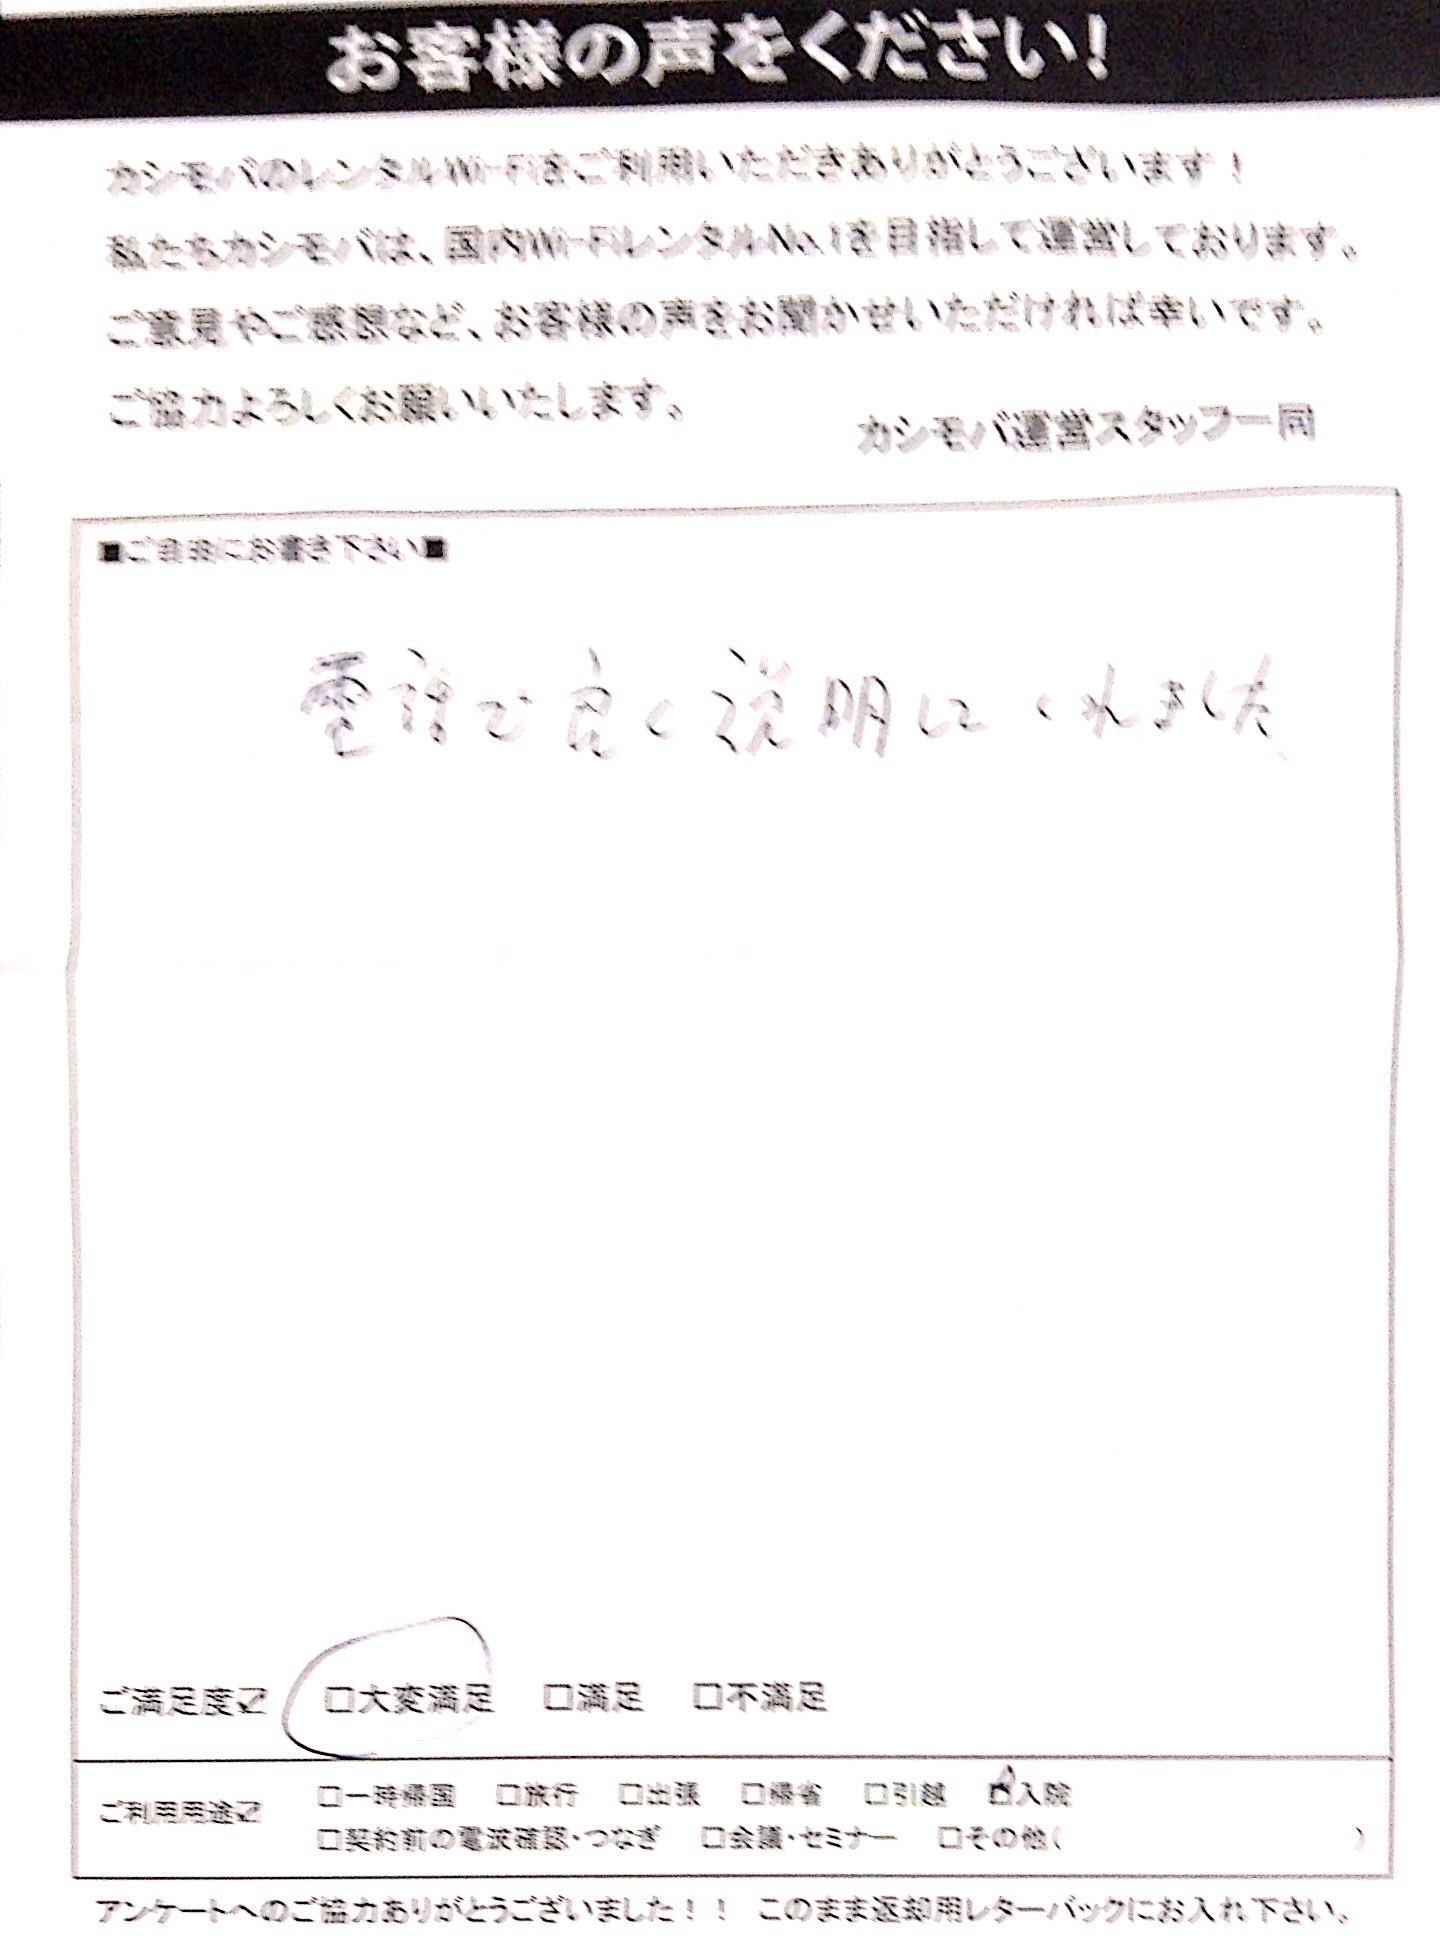 お客様の声をください!
カシモバのレンタルWi-Fiをご利用いただきありがとうございます!
私たちカシモバは、国内Wi-FiレンタルNo.1を目指して運営しております。
ご意見やご感想など、お客様の声をお聞かせいただければ幸いです。
ご協力よろしくお願いいたします。
カシモバ運営スタッフ一同
■ご自由にお書き下さい■
電話で良く説明してくれました
ご満足度☑ □大変満足 □満足 □不満足
ご利用用途☑ □一時帰国 □旅行 □出張 □帰省 □引越 ☑入院
□契約前の電波確認・つなぎ □会議・セミナー □その他( )
アンケートへのご協力ありがとうございました!! このまま返却用レターパックにお入れ下さい。